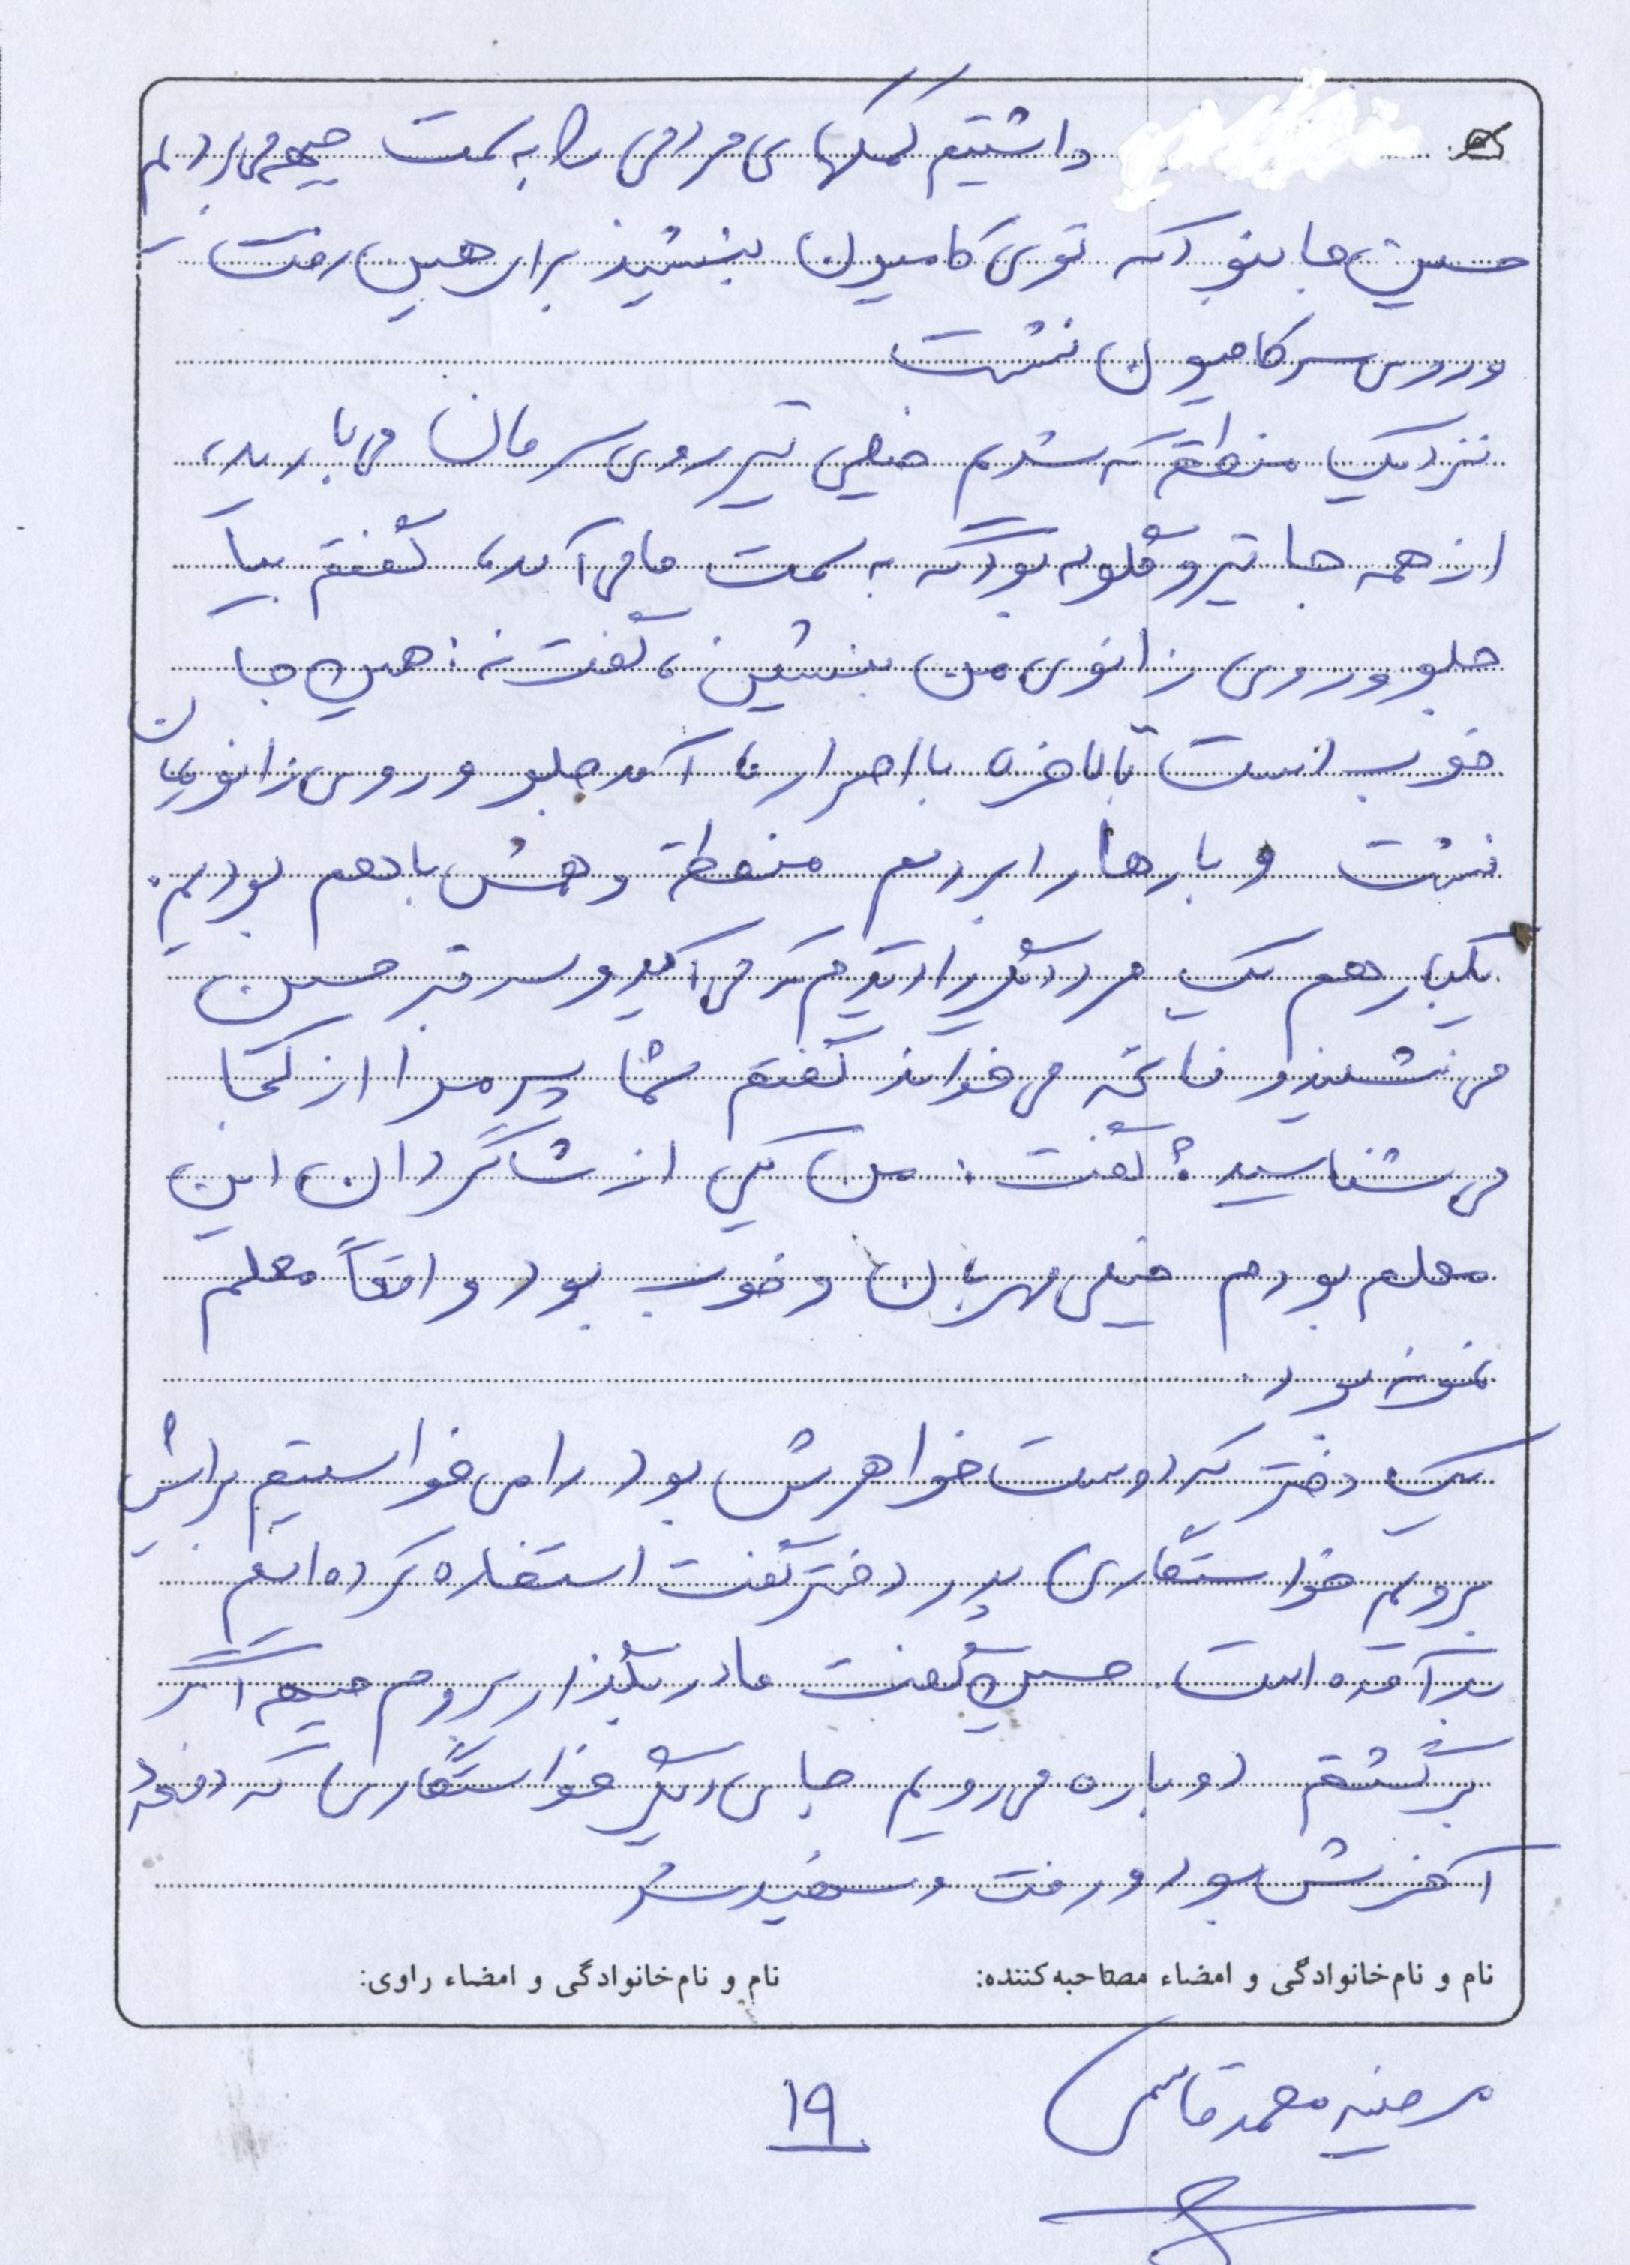 داشتیم کمکهای مردمی را به سمت جبهه می بردیم
حسین جا نبود که توی کامیون بنشیند برای همین رفت
و روی سر کامیون نشست
نزدیک منطقه که شدیم خیلی تیر روی سرمان می بارید،
از همه جا تیر و گلوله بود که به سمت ما می آمد، گفتم بیا
جلو و روی زانوی من بنشین، گفت نه: همین جا
خوب است بالاخره با اصرار ما آمد جلو و روی زانویمان
نشست و بارها را بردیم منطقه و همش با هم بودیم.
یکبار هم یک مرد دیگر را دیدم که می آمد و سر قبر حسین
می نشیند و فاتحه می خواند گفتم شما پسر مرا از کجا
می شناسید؟ گفت: من یکی از شاگردان این
معلم بودم خیلی مهربان و خوب بود واقعاً معلم
نمونه بود.
یک دختر که دوست خواهرش بود را می خواستیم برایش
برویم خواستگاری پدر دختر گفت استخاره کرده ایم
بد آمده است. حسین گفت مادر بگذار بروم جبهه اگر
برگشتم دوباره می رویم جای دیگر خواستگاری که دفعه
آخرش بود و رفت و شهید شد
نام و نام خانوادگی و امضاء مصاحبه کننده: نام و نام خانوادگی و امضاء راوی:
مرضیه محمدقاسمی
۱۹